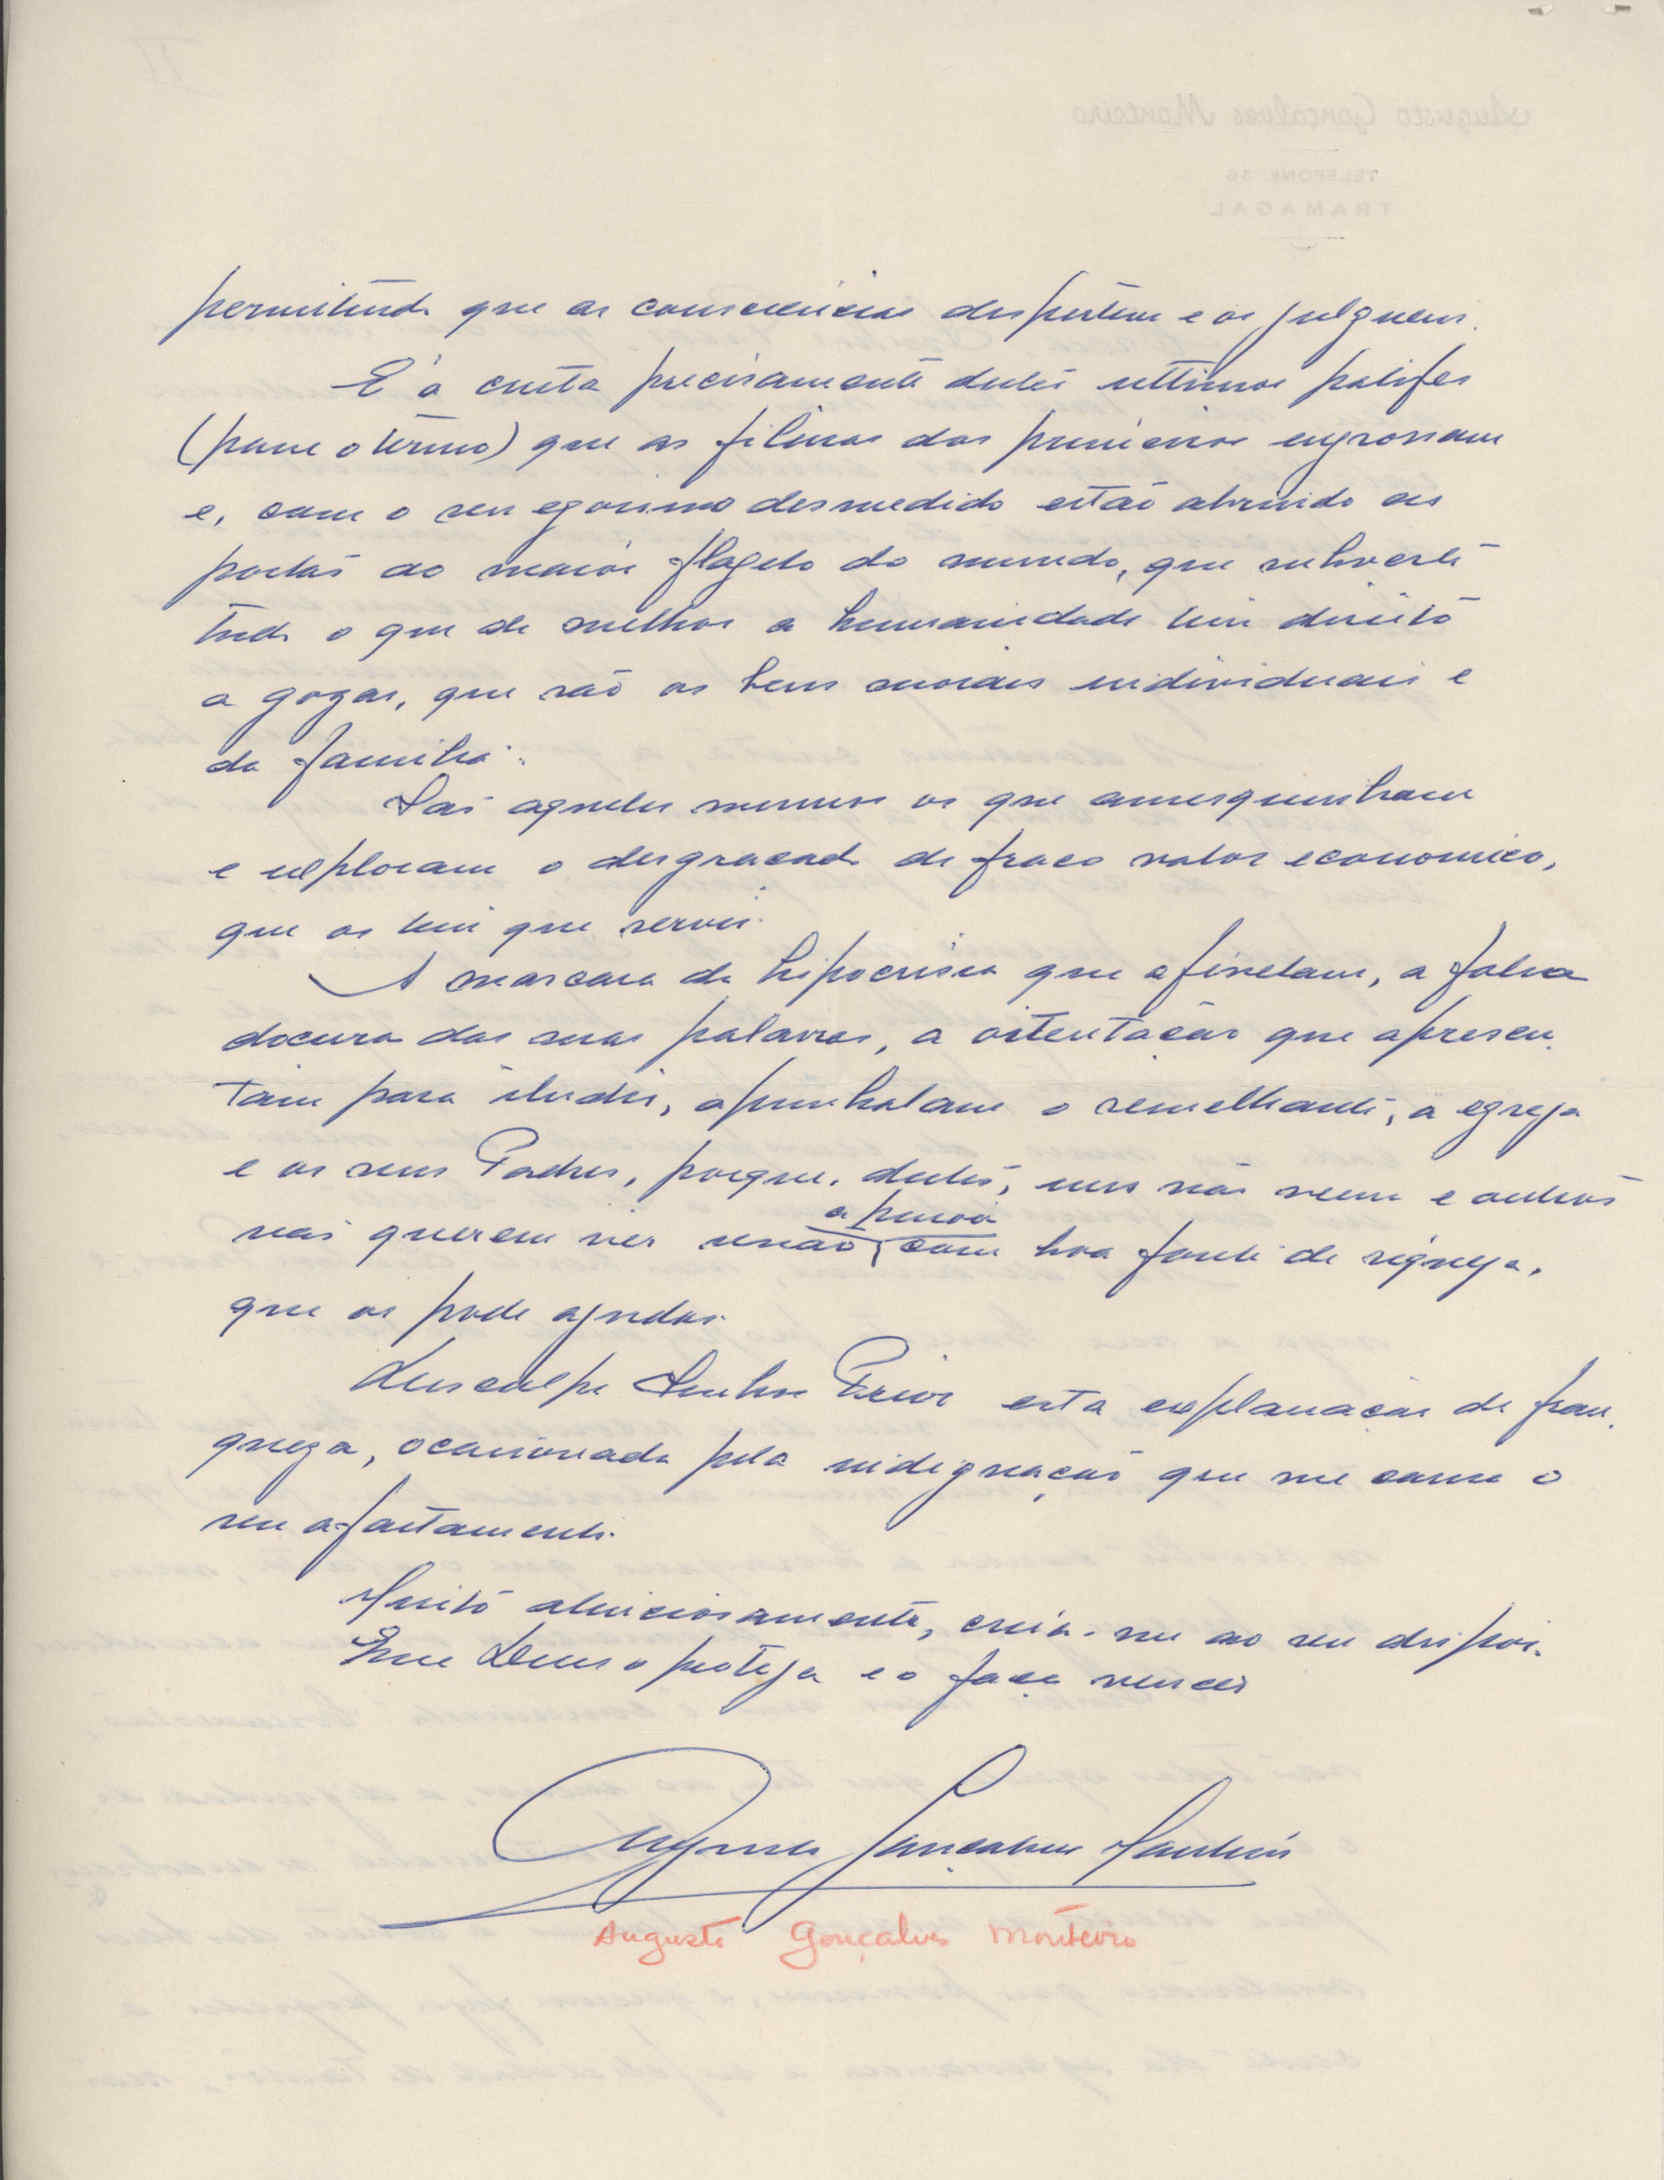 permitindo que as consciencias despertem e os julguem.
E' á custa precisamente destes ultimos patifes
(passe o termo) que as fileiras dos primeiros engrossam
e, com o seu egoismo desmedido estão abrindo as
portas ao maior flagelo do mundo, que subverte
tudo o que de melhor a humanidade tem direito
a gozar, que são os bens morais individuais e
da familia.
São aqueles mesmos os que amesquinham
e exploram o desgraçado de fraco valor economico,
que os tem que servir.
A mascara da hipocrisia que afivelam, a falsa
doçura das suas palavras, a ostentação que apresen-
tam para iludir, apunhalam o semelhante, a egreja
e os seus Padres, porque, destes, uns não veem e outros
não querem ver senão a pessoa com boa fonte de riqueza,
que os pode ajudar.
Desculpe Senhor Prior esta explanação de fran-
queza, ocasionada pela indignação que me causa o
seu afastamento.
Muito atenciosamente, creia-me ao seu dispor.
Que Deus o proteja e o faça vencer
Augusto Gonçalves Monteiro
Augusto Gonçalves Monteiro
Augusto Gonçalves Monteiro
TELEFONE 36
TRAMAGAL
II